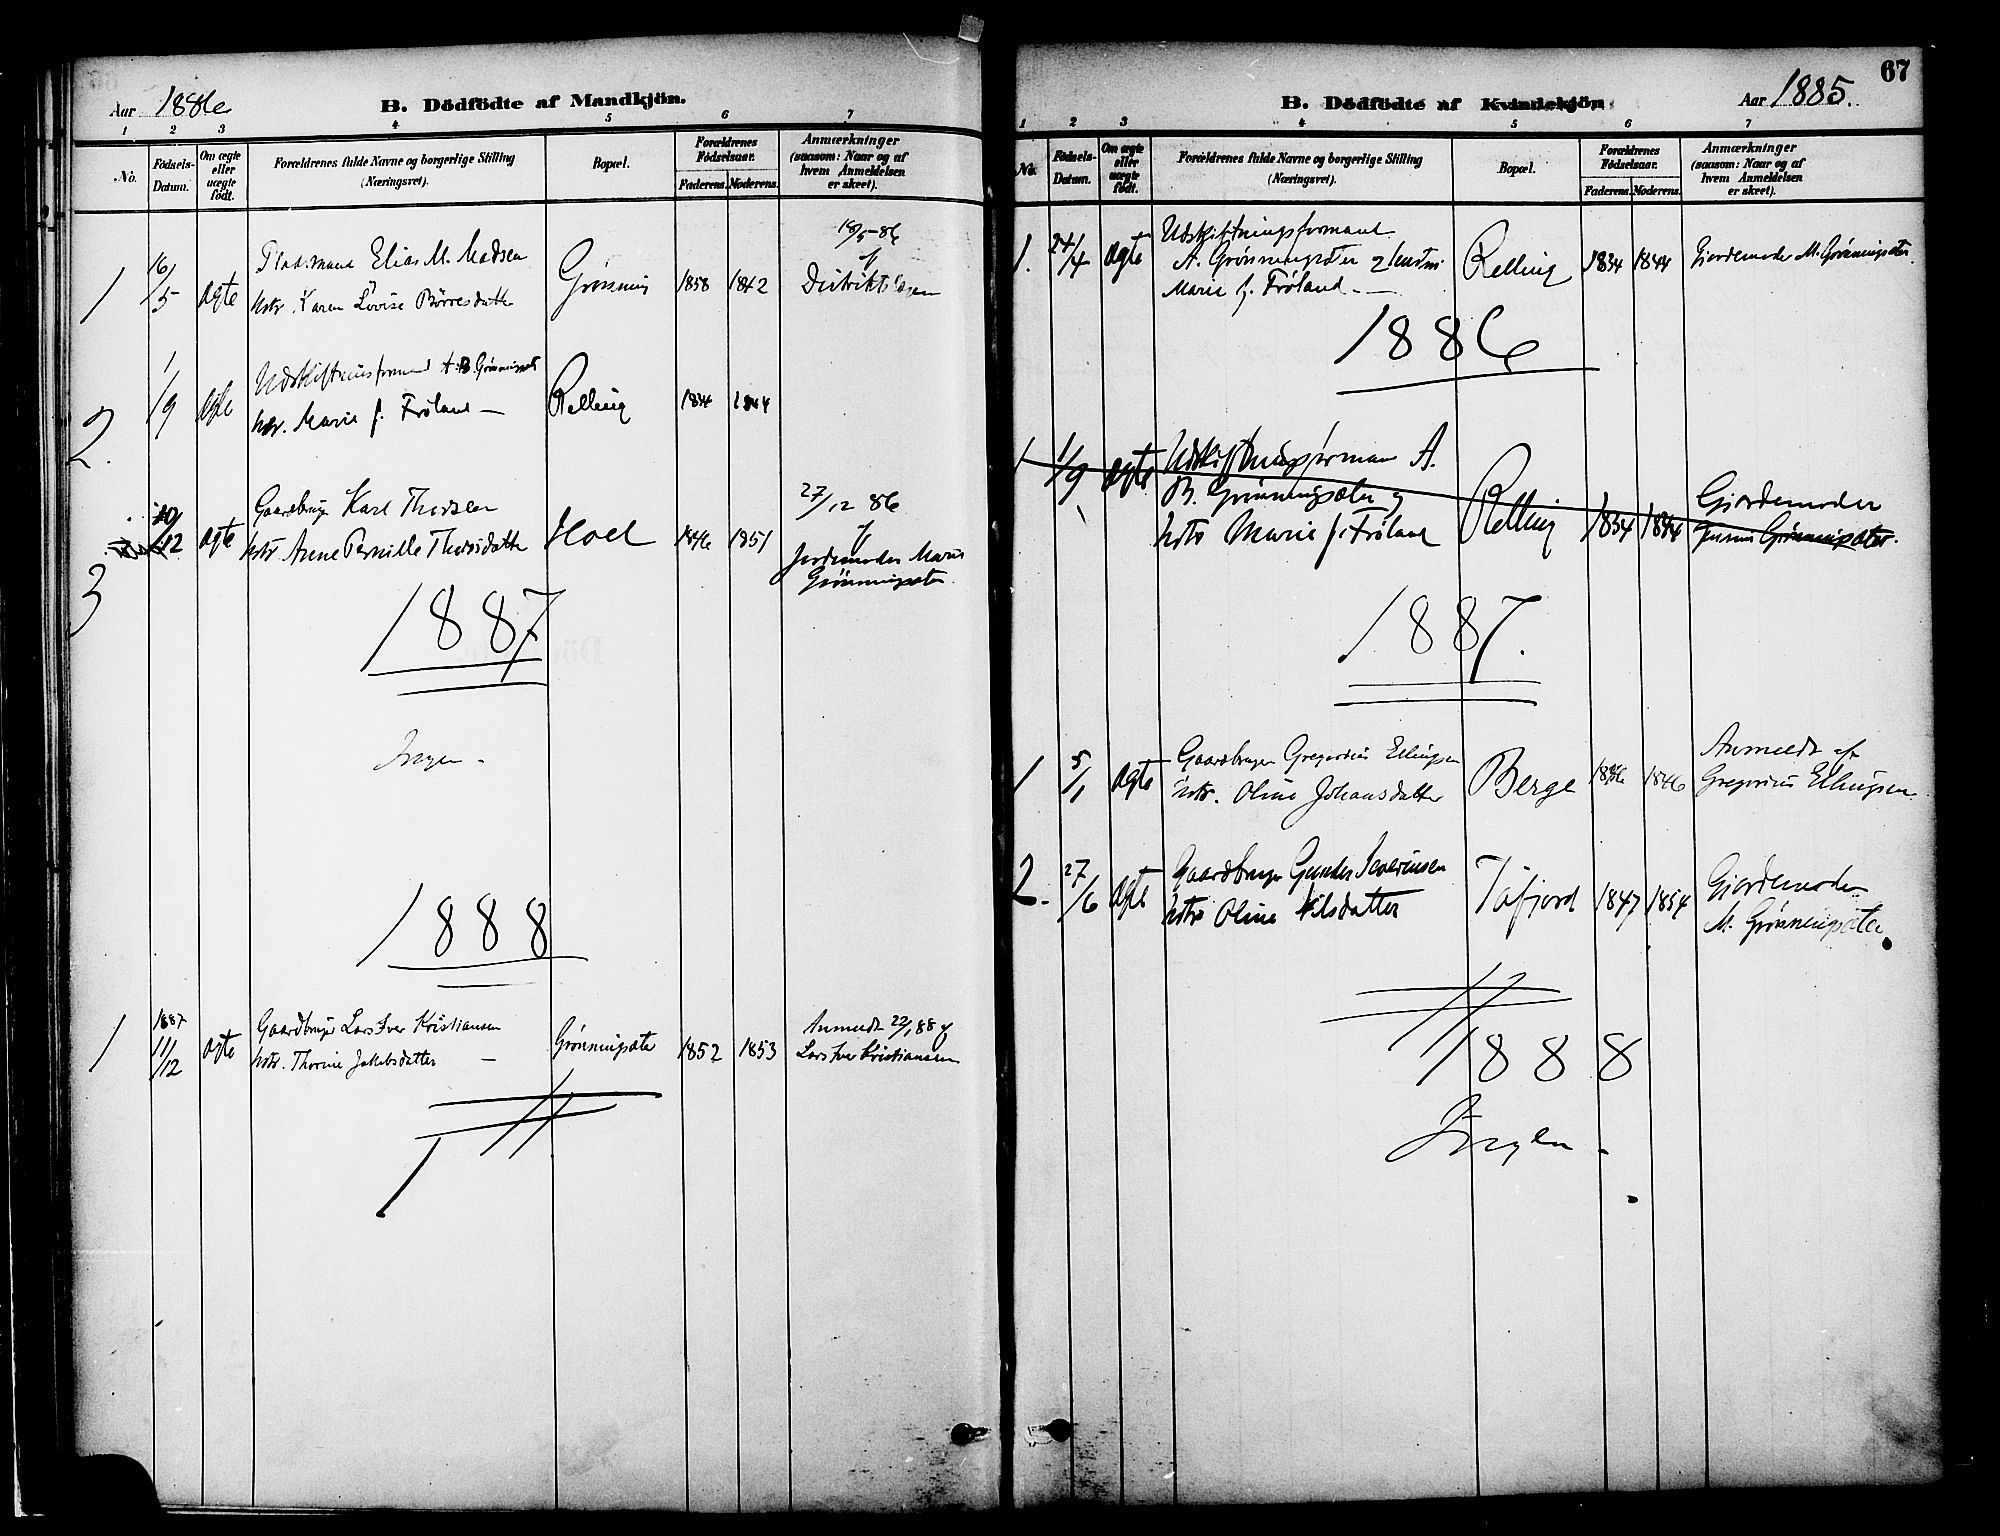 Aar 1886 B. Dödfödte af Mandkjön.
1 2 3 4 5 6 7
No. Födsels-Datum. Om ægte eller uægte födt. Forældrenes fulde Navne og borgerlige Stilling (Næringsvei). Bopæl. Forældrenes Födselsaar. Faderens. Moderens. Anmærkninger (saasom: Naar og af hvem Anmeldelsen er skeet).
18/5-86
1 16/5 ægte Pladsmand Elias M. Madsen
Hstr. Karen Lovise Börresdatter Grønning 1858 1842 Distriktslægen
2. 1/9 ægte Udskiftningsformand A. B. Grønningsæter
Hstr. Marie f. Frøland — Relling 1834 1844
27/12 86
3 10/12 ægte Gaardbruger Karl Thorsen
Hstr Anne Pernille Thorsdatter Hoel 1846 1851 Jordemoder Marie
Grönningsæter
1887
Ingen -
1888
1 1887 11/12 ægte Gaardbruger Lars Iver Kristiansen
Hstr. Thorine Jakobsdatter — Grønningsæter 1852 1853 Anmeldt 22/1 88 af
Lars Iver Kristiansen
67
B. Dödfödte af Kvindekjön. Aar 1885.
1 2 3 4 5 6 7
No. Födsels-Datum. Om ægte eller uægte födt. Forældrenes fulde Navne og borgerlige Stilling (Næringsvei). Bopæl. Forældrenes Födselsaar. Faderens. Moderens. Anmærkninger (saasom: Naar og af hvem Anmeldelsen er skeet).
1. 24/4 ægte Udskiftningsformand
A. Grønningsæter og Hustru
Marie f. Frøland — Relling 1834 1844 Gjordemoder M. Grønningsæter.
1886
1 1/9 ægte Udskiftningsforman A.
B. Grønningsæter og
Hstr Marie f. Frøland Relling 1834 1844 Gjordemoder
Grønningsæter.
1887.
1 5/1 ægte Gaardbruger Gregorius Ellingsen
Hstr. Oline Johansdatter Berge 1846 Anmeldt af
Gregorius Ellingsen
2. 27/6 ægte Gaardbruger Gunder Severinsen
Hstr Oline Nilsdatter Tafjord 1847 1854 Gjordemoder
M. Grønningsæter
1888
Ingen -